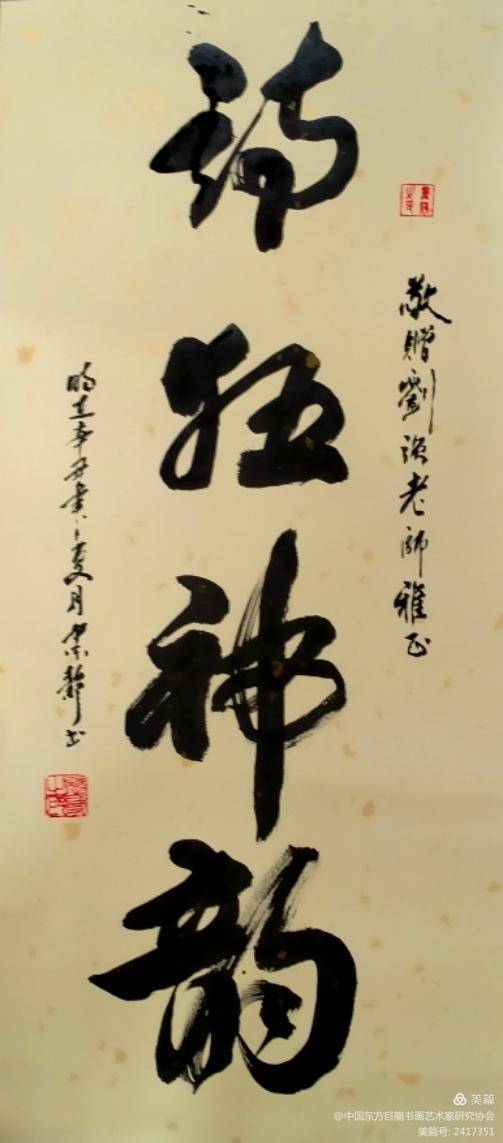 詩狂神韵
敬贈劉强老師雅正
時在辛丑之夏月静书
美篇
@中国东方巨龍书画艺术家研究协会
美篇号: 2417351